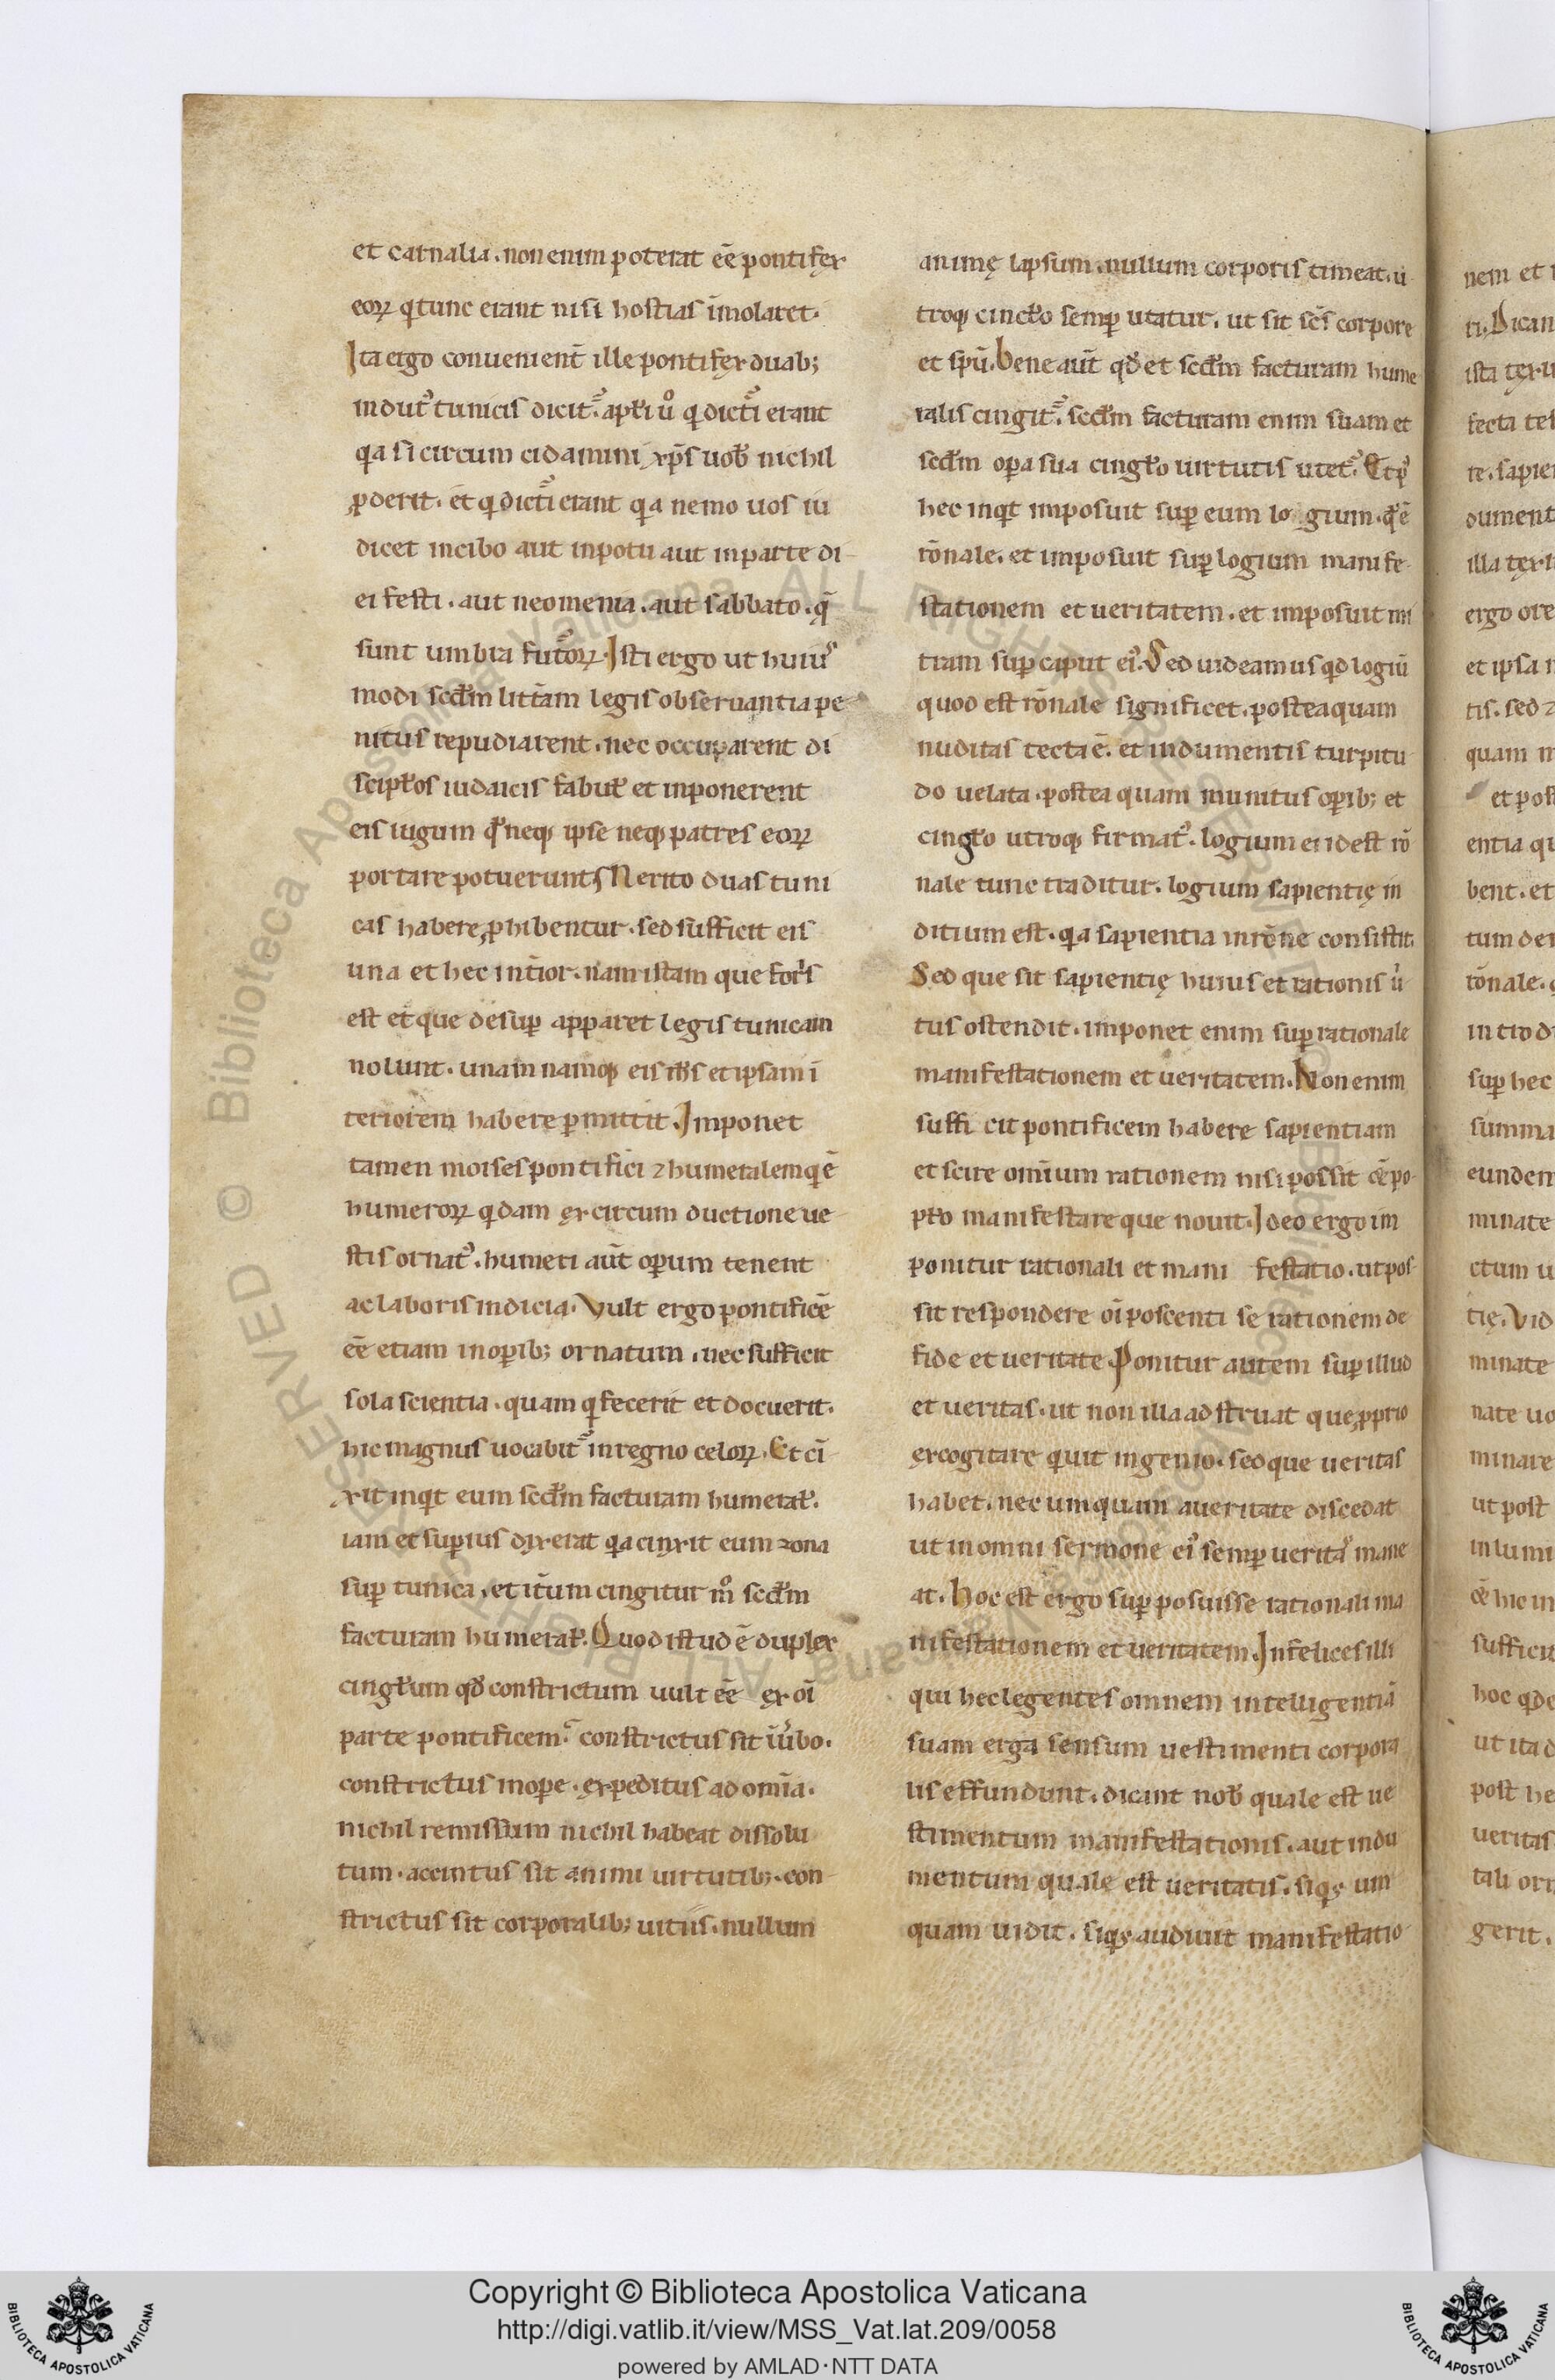 et carnalia. non enim poterat eē pontifex
eoꝝ q̇ tunc erant nisi hostias īmolaret.
Ita ergo convenient̄ ille pontifex duab;
indut᾿ tunicis dicit᷑. apl̄i ů q̇ dictͥ erant
qͣa si circum cidamini xp̄s uob̄ nichil
ꝓderit. et q̇ dictͥ erant qͣa nemo uos iu
dicet in cibo aut in potu aut in parte di
ei festi. aut neomenia. aut sabbato. q̄
sunt umbra fut᷑oꝝ. Isti ergo ut huiu᾿
modi scd̄m litt̄am legis obseruantia pe
nitus repudiarent. nec occuparent di
scipl̄os iudaicis fabul̄ et inponerent
eis iugum qͦ neq; ipse neq; patres eoꝝ
portare potuerunt. Merito duas tuni
cas habere ꝓhibentur. sed sufficit eis
una et hec int̄ior. nam istam que foris
est et que desuꝑ apparet legis tunicam
nolunt. unam namq; eis ih̄s et ipsam ī
teriorem habere ꝑmittit. Imponet
tamen moises pontifici ⁊ humeralem q̇ ē
humeroꝝ q̇dam ex circum ductione ue
stis ornat᾿. humeri aūt oꝑum tenent
ac laboris indicia. Vult ergo pontificē
eē etiam in oꝑib; ornatum. nec sufficit
sola scientia. quam q̇ fecerit et docuerit.
hic magnus uocabit᷑ in regno celoꝝ. Et cī
xit inqͥt eum scd̄m facturam humeral̄.
iam et suꝑius dixerat qͣa cinxit eum zona
suꝑ tunica. et it̄um cingitur m̊ scd̄m
facturam humeral̄. Quod istud ē duplex
cingl̄um qd̄ constrictum uult eē ex oī
parte pontificem. constrictus sit ī ůbo.
constrictus in oꝑe. expeditus ad om̄ia.
nichil remissum nichil habeat dissolu
tum. accintus sit animi uirtutib;. con
strictus sit corporalib; uitiis. nullum
animę lapsum. nullum corporis timeat. u
troq; cincl̄o semꝑ utatur. ut sit sc̄s corpore
et spū. Bene aūt qd̄ et scd̄m facturam hume
ralis cingit᷑. scd̄m facturam enim suam et
scd̄m oꝑa sua cingl̄o uirtutis utet᷑. Et p᾿
hec inqͥt imposuit suꝑ eum logium. qͦd ē
rōnale. et imposuit suꝑ logium manife
stationem et ueritatem. et imposuit mi
tram suꝑ caput ei᾿. Sed uideamus qͥd logiū
quod est rōnale significet. posteaquam
nuditas tecta ē. et indumentis turpitu
do uelata. posteaquam munitus oꝑib; et
cingl̄o utroq; firmat᾿. logium ei id est rō
nale tunc traditur. logium sapientię in
ditium est. qͣa sapientia in rōne consistit.
Sed que sit sapientię huius et rationis ů
tus ostendit. imponet enim suꝑ rationale
manifestationem et ueritatem. Non enim
suffi cit pontificem habere sapientiam
et scire omīum rationem nisi possit eē po
pl̄o manifestare que nouit. Ideo ergo im
ponitur rationali et mani festatio. ut pos
sit respondere oī poscenti se rationem de
fide et ueritate. Ponitur autem suꝑ illud
et ueritas. ut non illa adstruat que ꝓprio
excogitare quit ingenio. sed que ueritas
habet. nec umquam a ueritate discedat
ut in omni sermone ei᾿ semꝑ uerita᾿ mane
at. Hoc est ergo suꝑ posuisse rationali ma
nifestationem et ueritatem. Infelices illi
qui hec legentes omnem intelligentiā
suam erga sensum uestimenti corpora
lis effundunt. dicant nob̄ quale est ue
stimentum manifestationis. aut indu
mentum quale est ueritatis. siqͥs um
quam uidit. siqͥs audiuit manifestatio
Copyright © Biblioteca Apostolica Vaticana
http://digi.vatlib.it/view/MSS_Vat.lat.209/0058
powered by AMLAD·NTT DATA